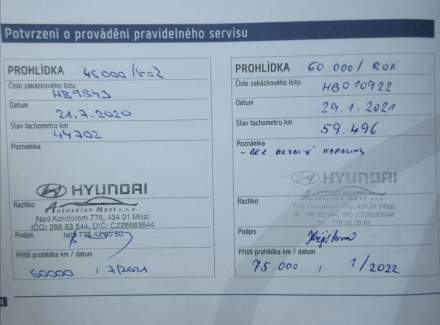 Potvrzení o provádění pravidelného servisu
PROHLÍDKA 45000/
Číslo zakázkového listu
HB9843
Datum
21.7.2020
Stav tachometru km
44702
Poznámka
HYUNDAI
Razítko
Autosalon Most s.r.o.
Nad Kondorom 776, 434 01 Most
IČO: 286 83 544, DIČ: CZ28683544
Podpis
Příští prohlídka km / datum
60000 , 7/2021
PROHLÍDKA 60.000/ ROK
Číslo zakázkového listu
HB010922
Datum
29.1.2021
Stav tachometru km
59.496
Poznámka
- BEZ BRZDOVÉ KAPALINY
HYUNDAI
Razítko
Podpis
Příští prohlídka km / datum
75.000 , 1/2022